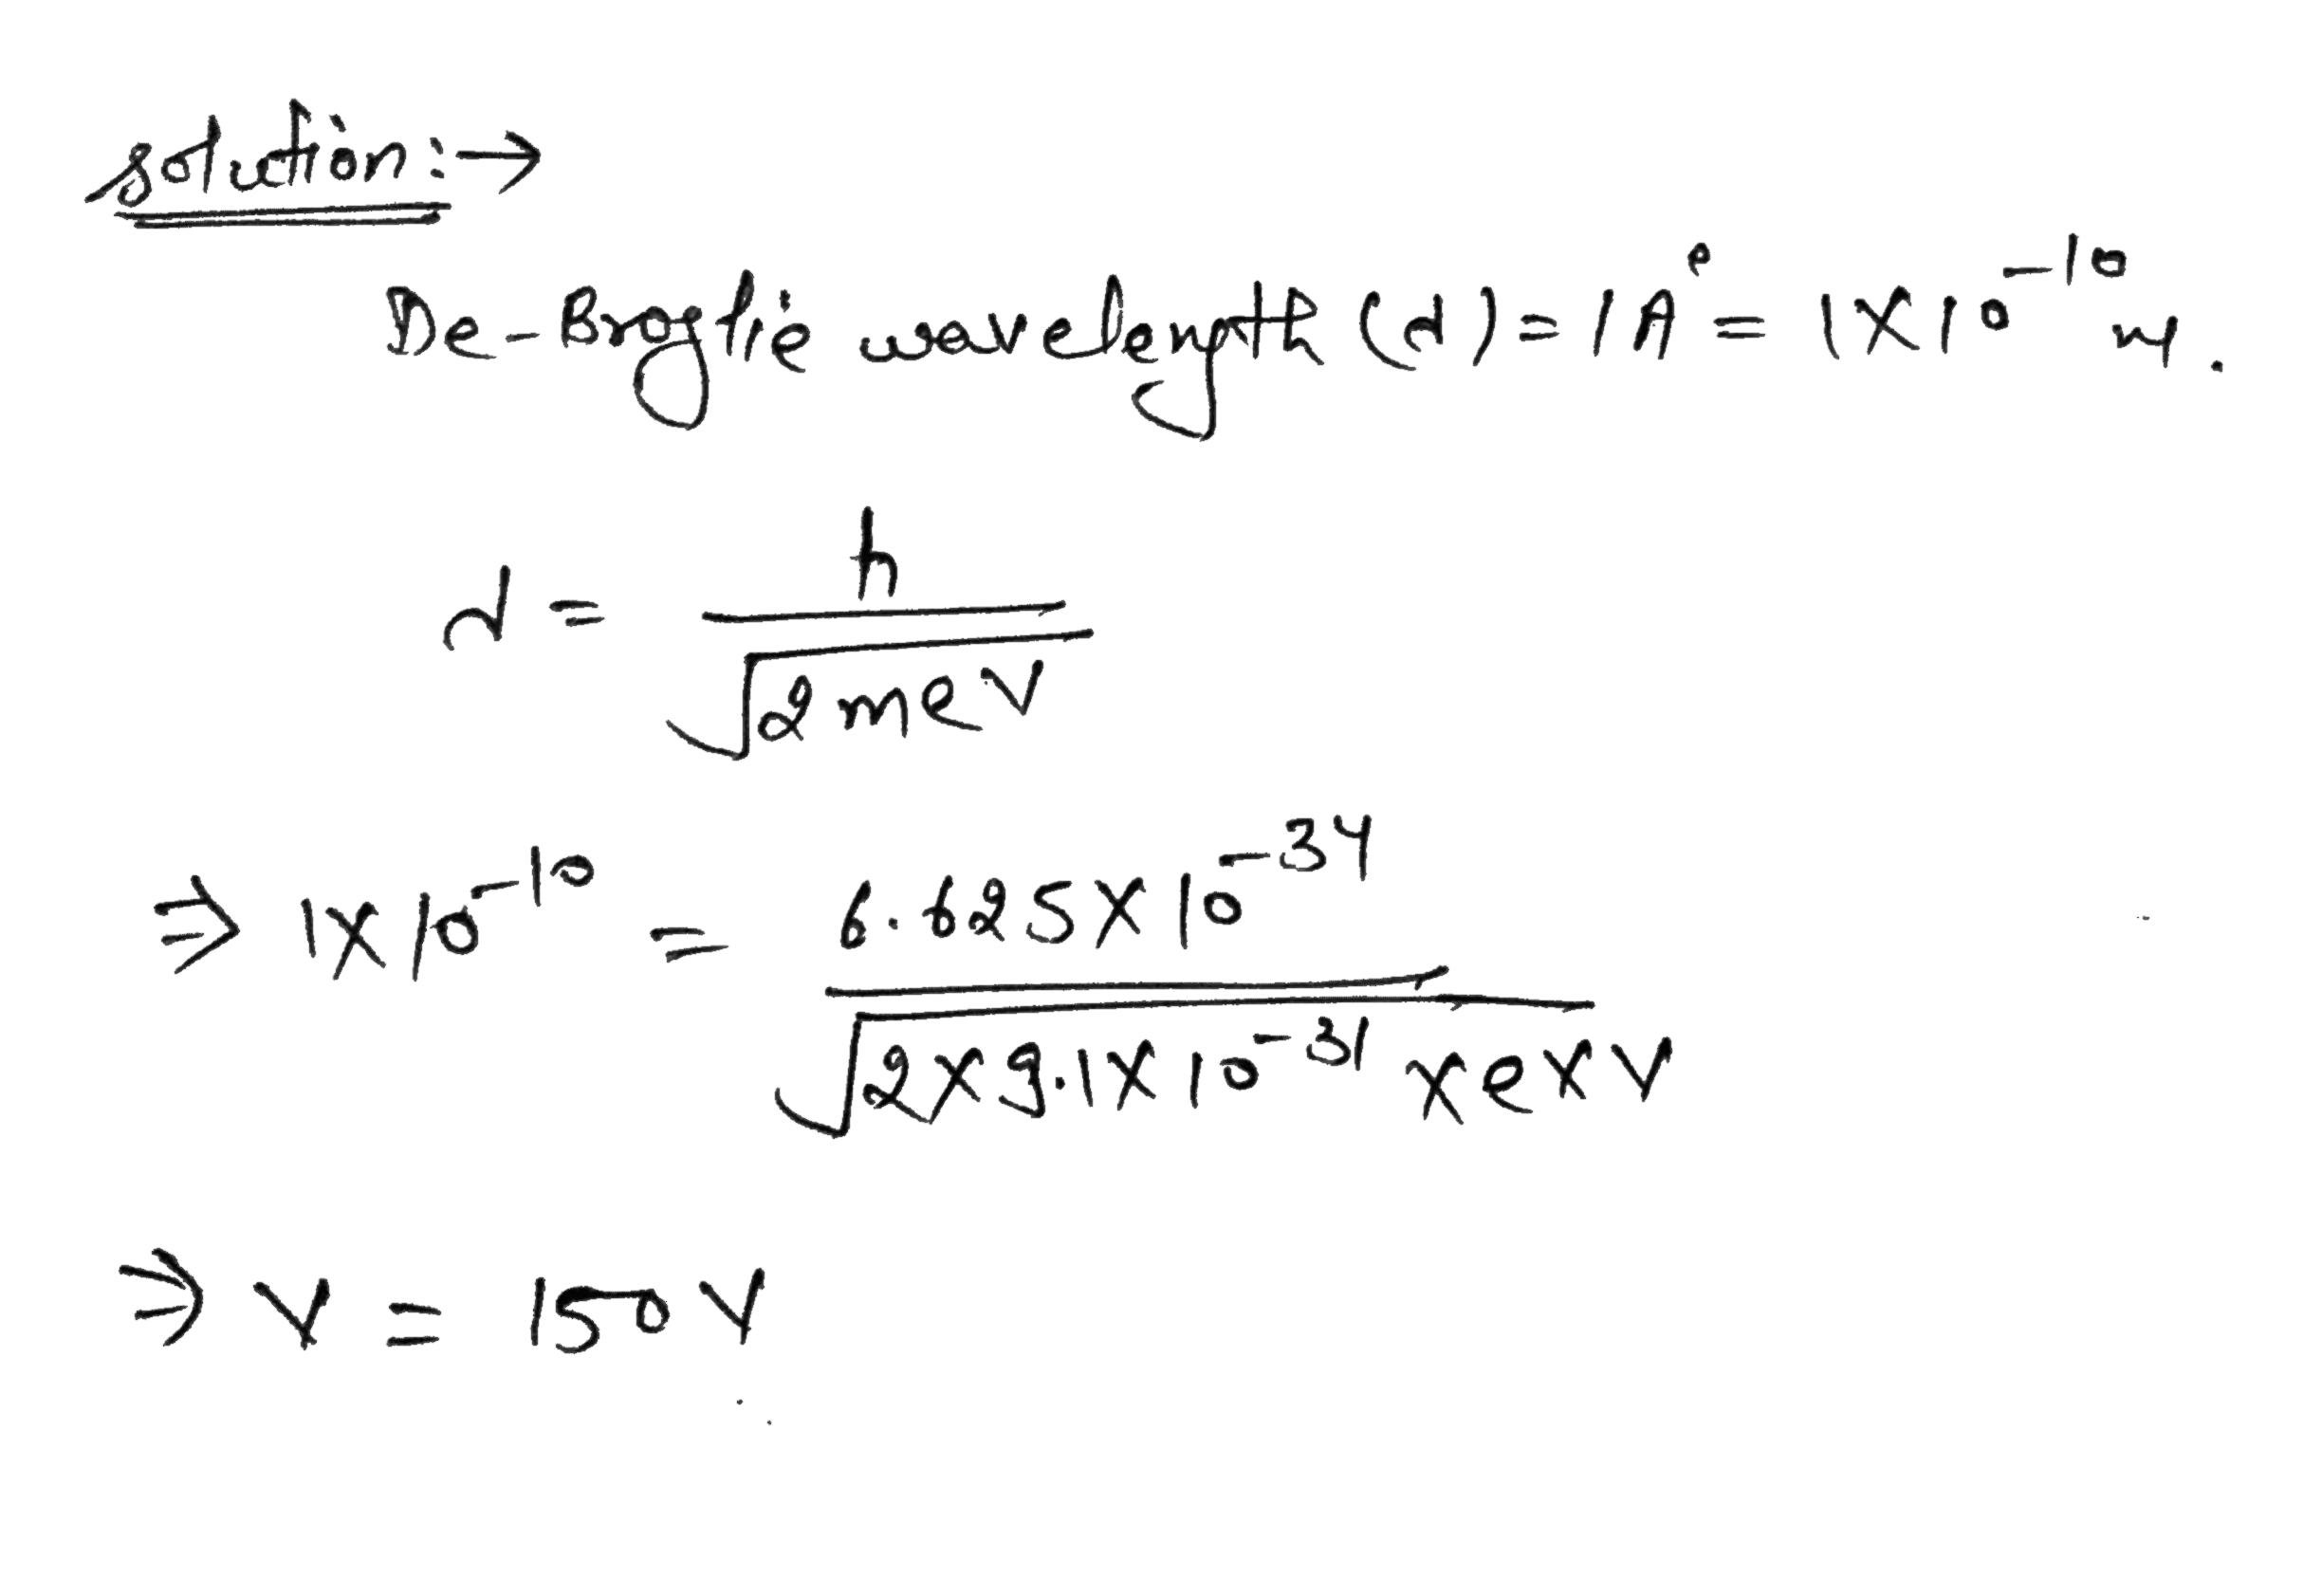 solution :→
De-Broglie wavelength (λ) = 1 A° = 1×10⁻¹⁰ m.
λ = h / √2meV
⇒ 1×10⁻¹⁰ = 6.625×10⁻³⁴ / √2×9.1×10⁻³¹×e×V
⇒ V = 150V